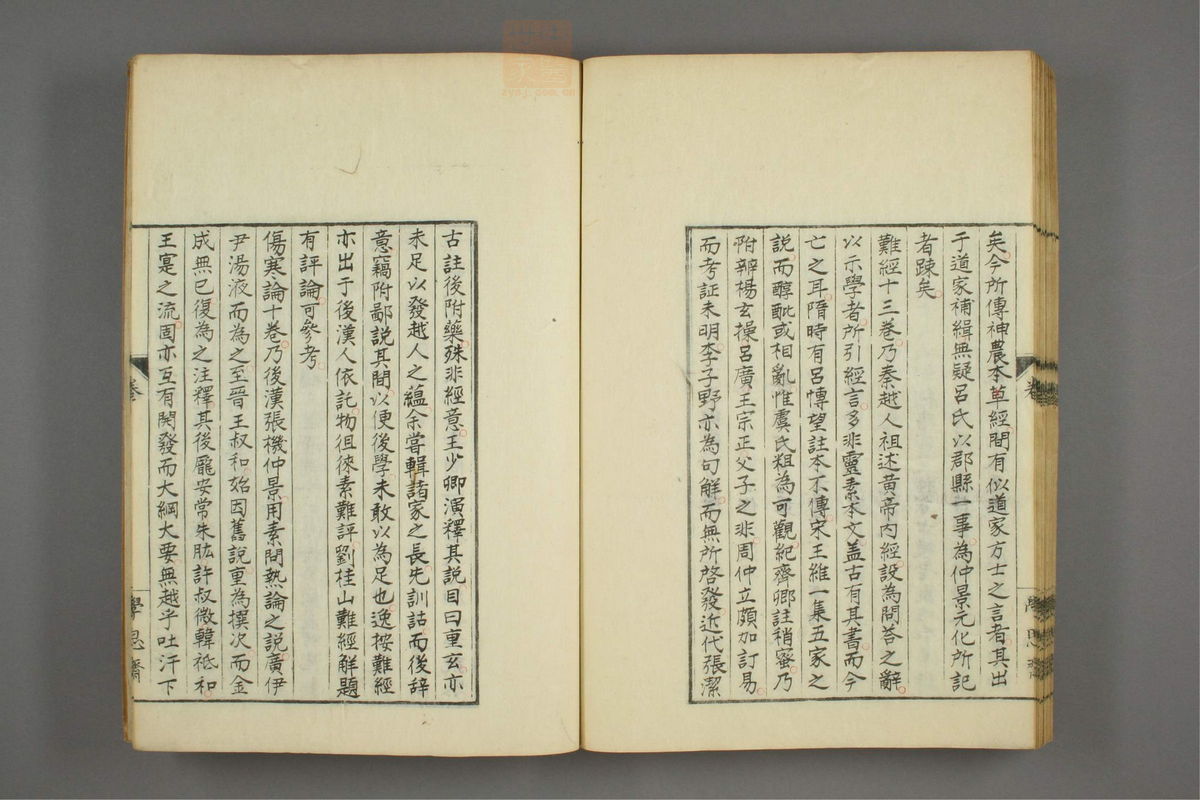 矣今所傳神農本草經間有似道家方士之言者其出
于道家補緝無疑呂氏以郡縣一事為仲景元化所記
者踈矣
難經十三卷乃秦越人祖述黄帝内經設為問荅之辭
以示學者所引經言多非靈素本文盖古有其書而今
亡之耳隋時有呂慱望註本不傳宋王維一集五家之
說而醇酏或相亂惟虞氏粗為可觀紀齊卿註稍蜜乃
附辨楊玄操呂廣王宗正父子之非周仲立頗加訂易
而考証未明李子野亦為句解而無所啓發近代張潔
古註後附藥殊非經意王少卿演釋其說目曰重玄亦
未足以發越人之蘊余嘗輯諸家之長先訓詁而後辞
意竊附鄙說其間以便後學未敢以為足也逸按難經
亦出于後漢人依託物徂徠素難評劉桂山難經解題
有評論可參考
傷寒論十卷乃後漢張機仲景用素問熱論之說廣伊
尹湯液而為之至晉王叔和始因舊說重為撰次而金
成無已復為之注釋其後龐安常朱肱許叔微韓祗和
王寔之流固亦互有開發而大綱大要無越乎吐汗下
學思齋